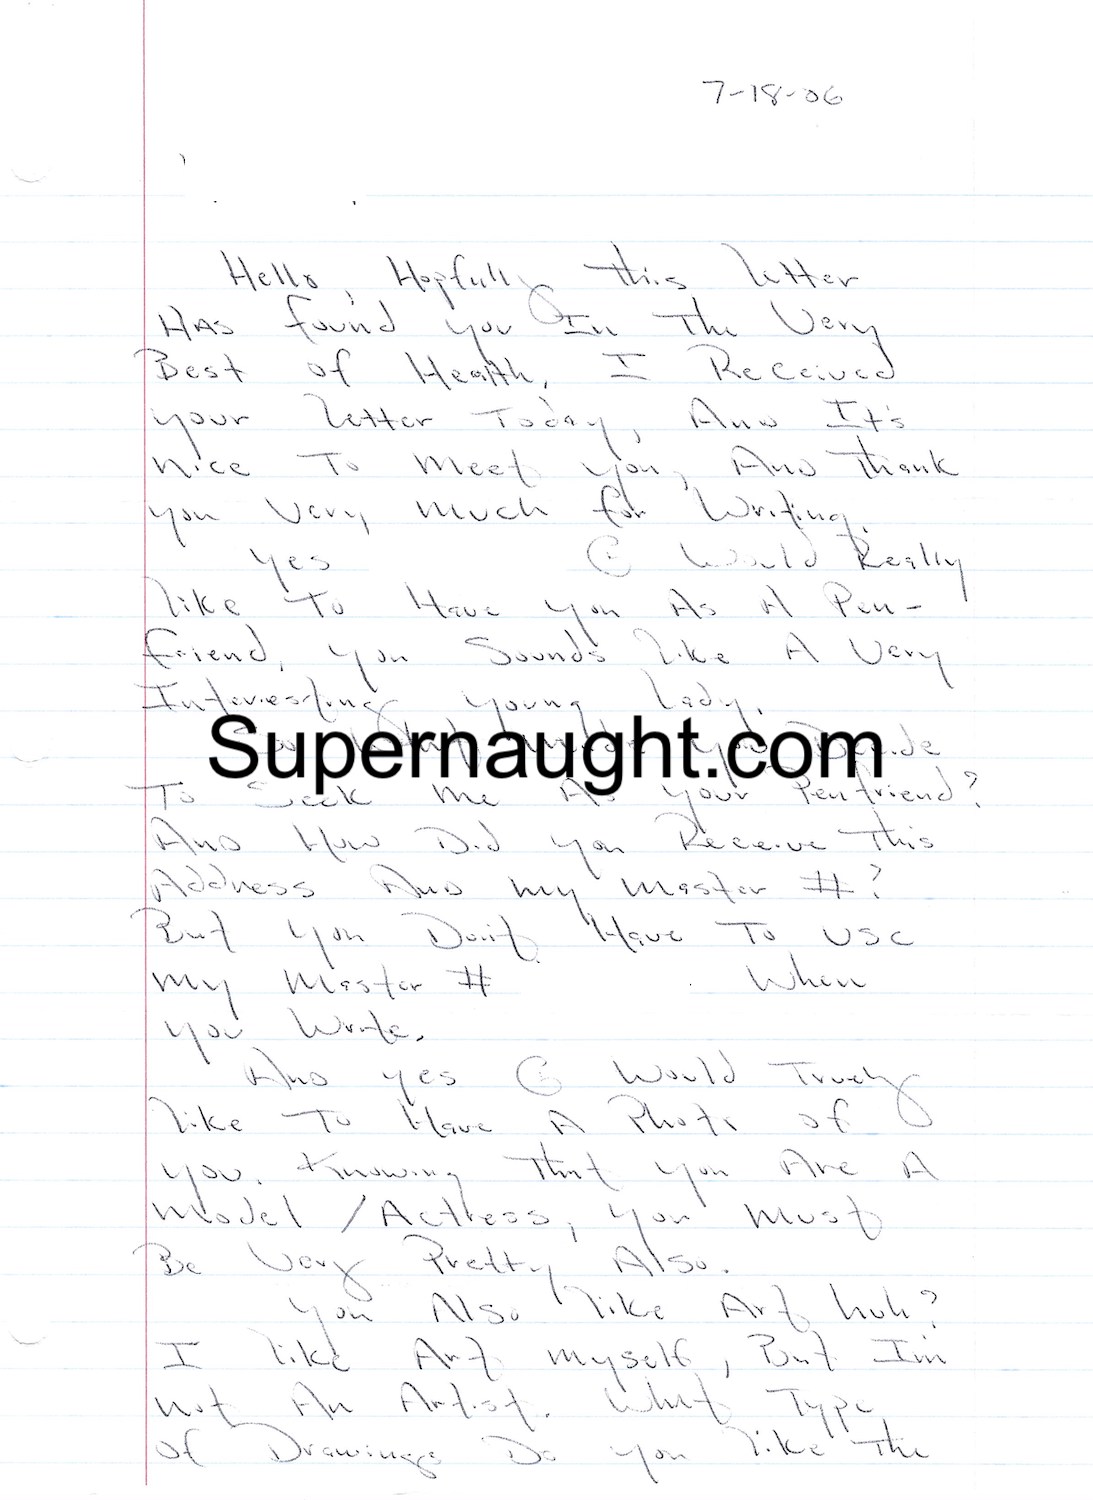 7-18-06
Hello, Hopfully this letter
HAs found you In The Very
Best of Health, I Received
your letter Today, And It's
nice To meet you, And Thank
you Very much for Writing.
yes I Would Really
like To Have you As A Pen-
friend, you Sounds like A Very
Interesting young lady.
Supernaught.com
you Decide
To Seek me As your Penfriend?
And How Did you Receive This
Address And my master #?
But you Don't Have To use
my Master # When
you Write.
And yes I Would Truely
like To Have A Photo of
you. Knowing That you Are A
Model/Actress, you Must
Be Very Pretty Also.
you Also like Art huh?
I like Art myself, But I'm
not An Artist. What Type
of Drawings Do you like The